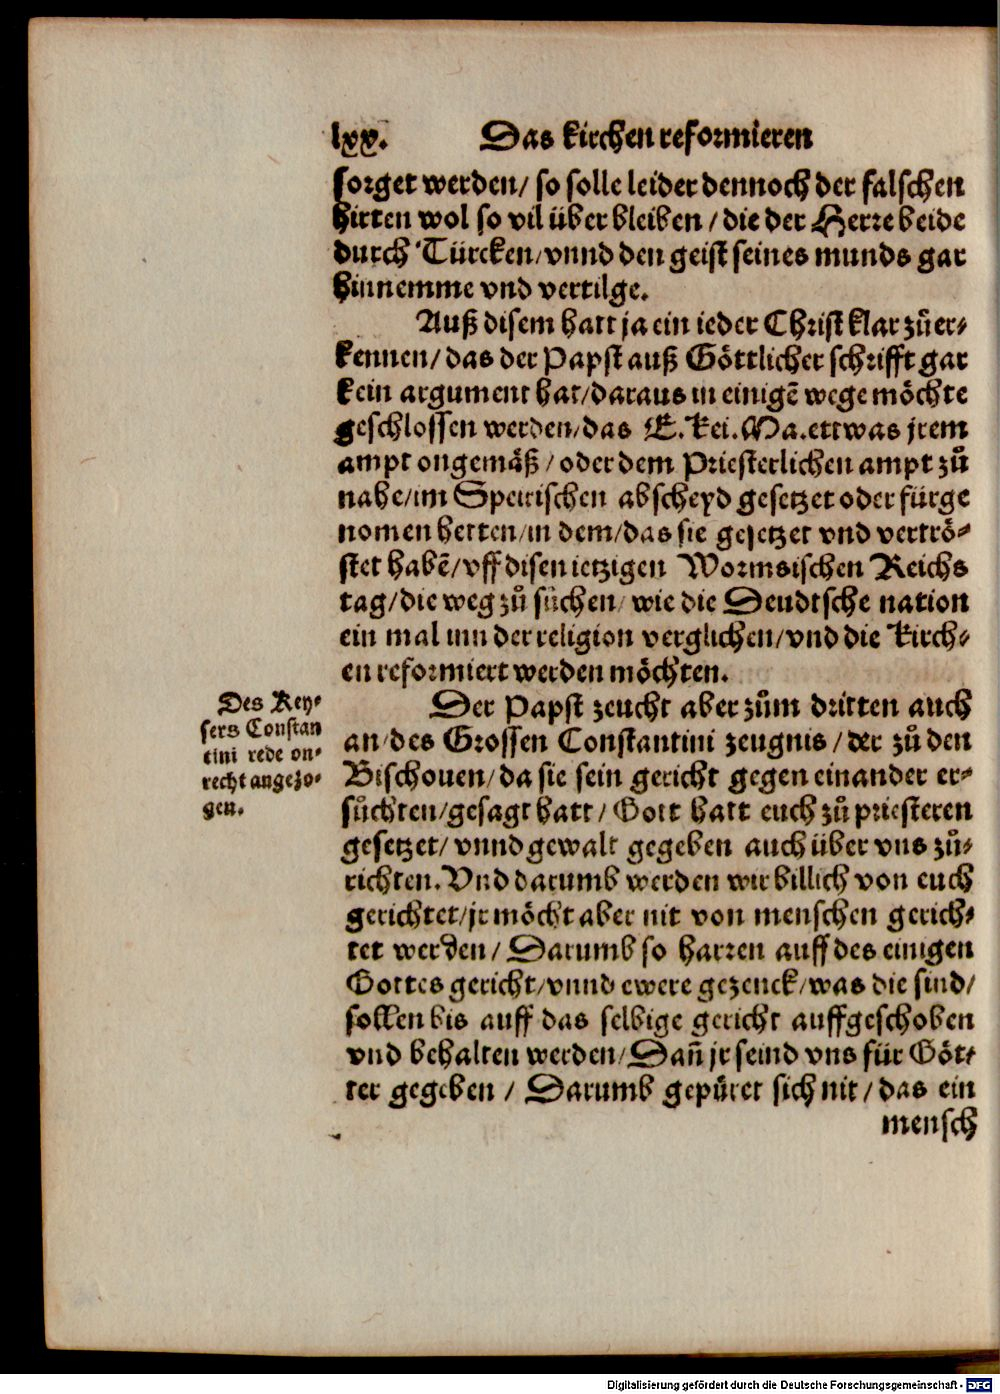 lxx. Das kirchen reformieren
sorget werden/ so solle leider dennoch der falschen
hirten wol so vil über bleiben / die der Herre beide
durch Türcken/ vnnd den geist seines munds gar
hinnemme vnd vertilge.
Auß disem hatt ja ein ieder Christ klar zů er-
kennen/ das der Papst auß Göttlicher schrifft gar
kein argument hat/ daraus in einigē wege möchte
geschlossen werden/ das E. Kei. Ma. ettwas jrem
ampt ongemäß / oder dem Priesterlichen ampt zů
nahe/ im Speirischen abscheyd gesetzet oder fürge
nomen hetten/ in dem/ das sie gesetzet vnd vertrö-
stet habē/ vff disen ietzigen Wormsischen Reichs
tag/ die weg zů sůchen/ wie die Deudtsche nation
ein mal inn der religion verglichen/ vnd die Kirch-
en reformiert werden möchten.
Des Key-
sers Constan
tini rede on-
recht angezo-
gen.
Der Papst zeucht aber zům dritten auch
an/ des Grossen Constantini zeugnis / der zů den
Bischouen/ da sie sein gericht gegen einander er-
sůchten/ gesagt hatt / Gott hatt euch zů priesteren
gesetzet/ vnnd gewalt gegeben auch über vns zů-
richten. Vnd darumb werden wir billich von euch
gerichtet/ jr möcht aber nit von menschen gerich-
tet werden / Darumb so harren auff des einigen
Gottes gericht/ vnnd ewere gezenck/ was die sind/
sollen bis auff das selbige gericht auffgeschoben
vnd behalten werden/ Dañ jr seind vns für Göt-
ter gegeben / Darumb gepüret sich nit / das ein
mensch
Digitalisierung gefördert durch die Deutsche Forschungsgemeinschaft - DFG